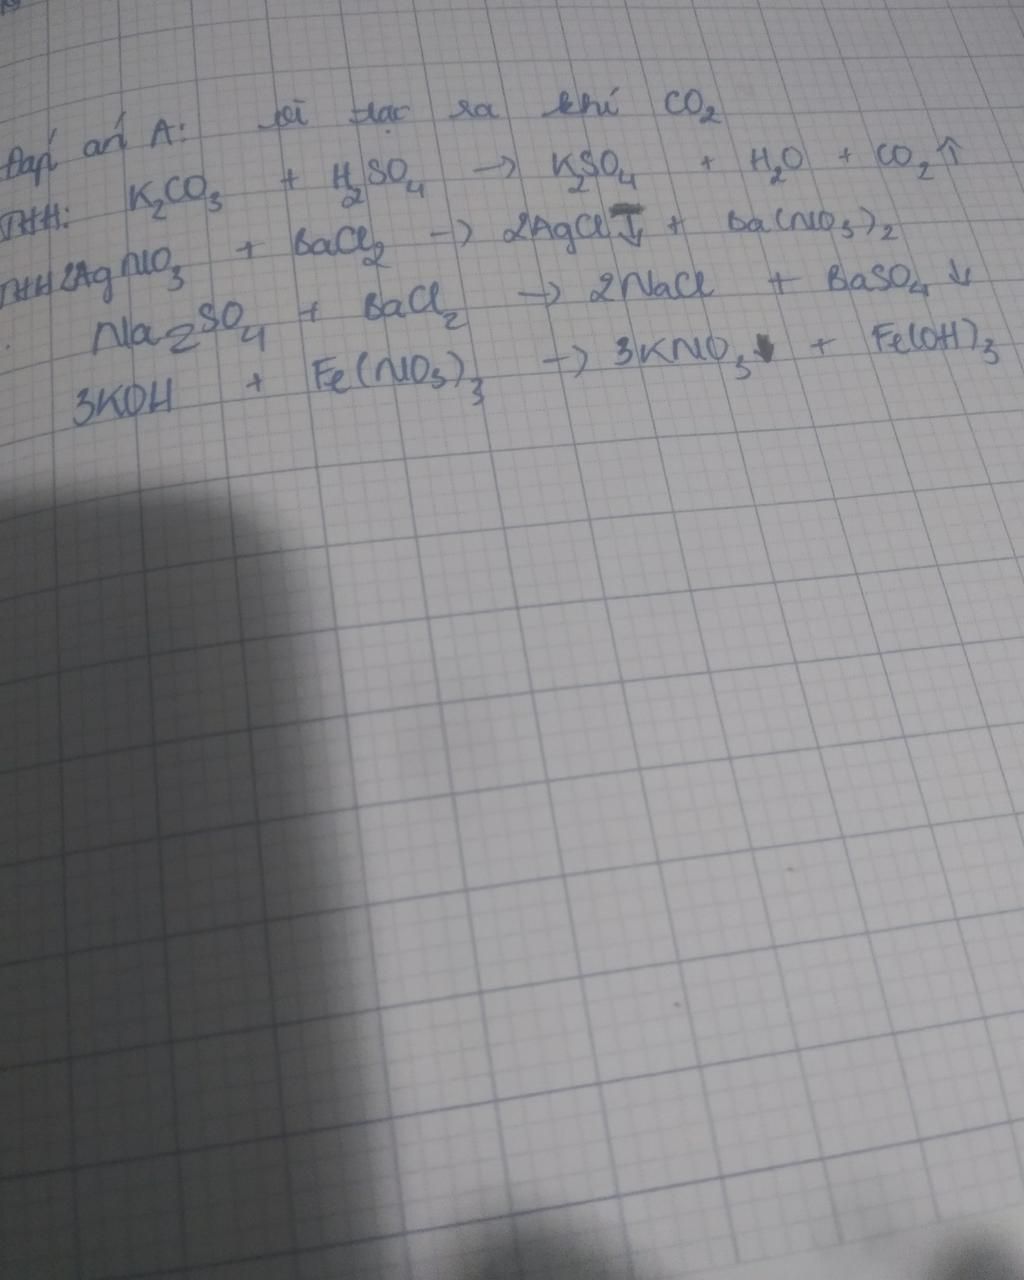 Đáp án A: vì tạo ra khí CO₂
PTHH: K₂CO₃ + H₂SO₄ → K₂SO₄ + H₂O + CO₂↑
PTHH 2AgNO₃ + BaCl₂ → 2AgCl↓ + Ba(NO₃)₂
Na₂SO₄ + BaCl₂ → 2NaCl + BaSO₄↓
3KOH + Fe(NO₃)₃ → 3KNO₃ + Fe(OH)₃